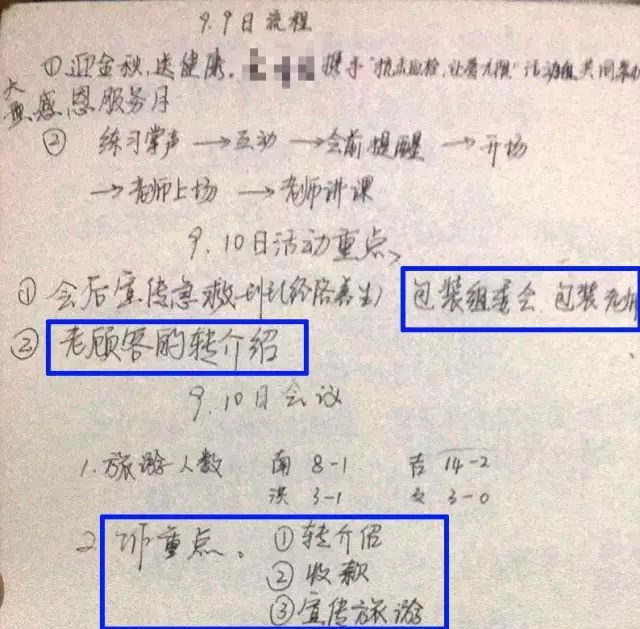 9.9日流程
①迎金秋,送健康。携手"抗击血栓,让爱无限"活动组共同举办
大型感恩服务月
② 练习掌声→互动→会前提醒→开场
→老师上场→老师讲课
9.10日活动重点、
①会后宣传急救 包装组委会 包装老师
②老顾客的转介绍
9.10日会议
1.旅游人数 南 8-1 吉 14-2
洪 3-1 文 3-0
2. 重点。 ①转介绍
②收款
③宣传旅游